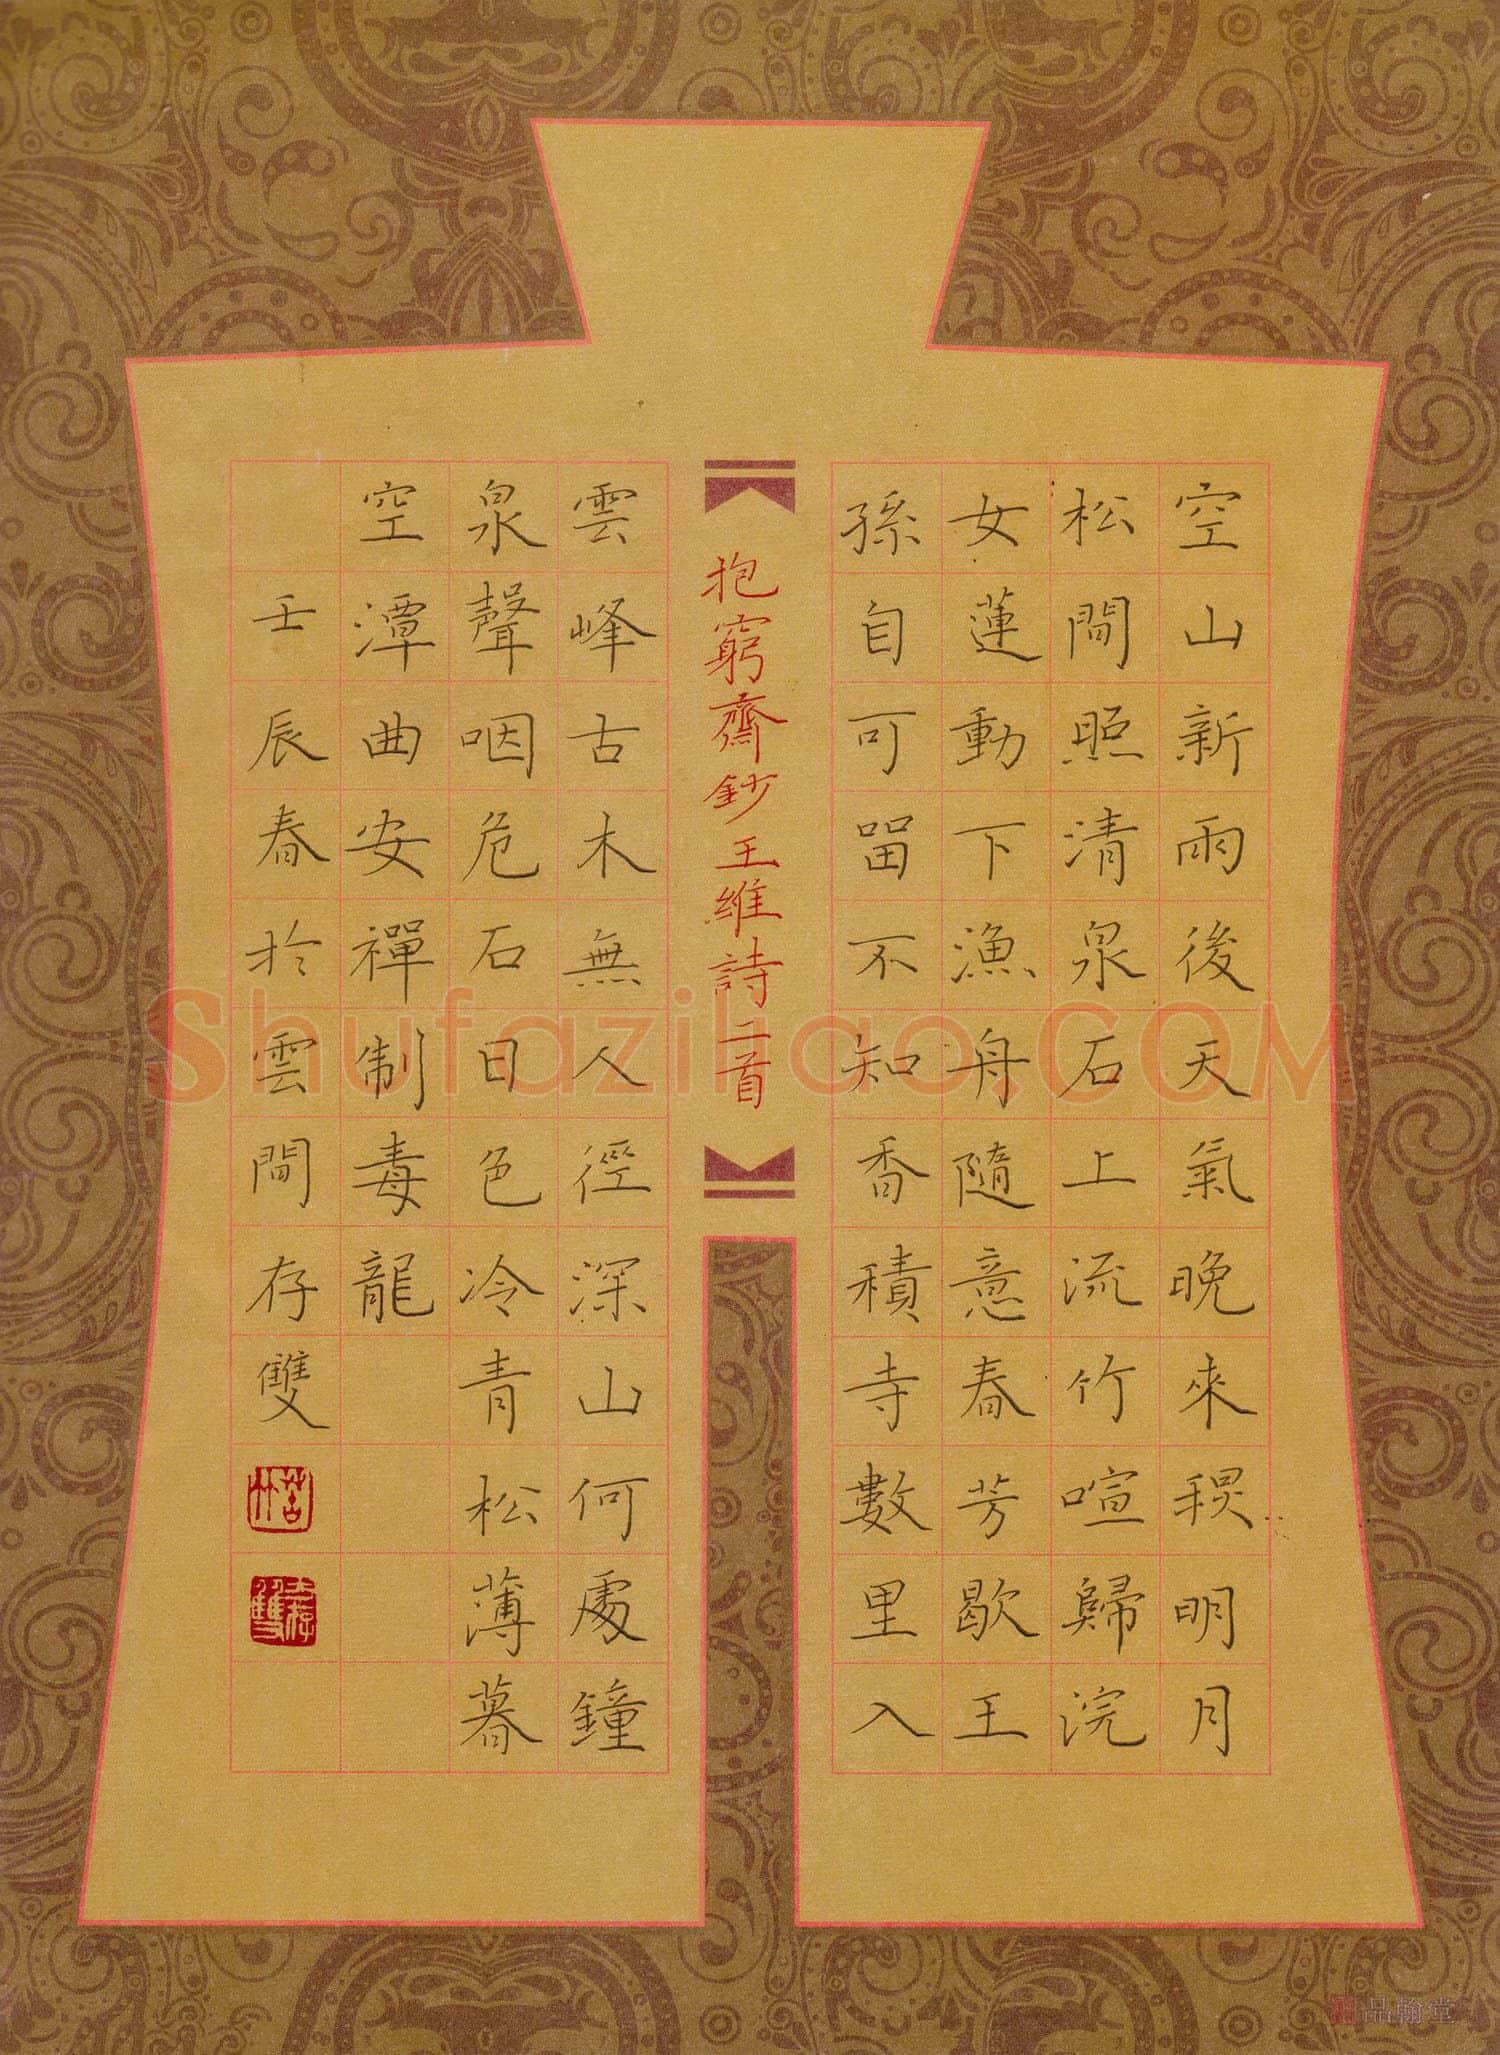 空山新雨後天氣晚來秋明月
松間照清泉石上流竹喧歸浣
女蓮動下漁舟隨意春芳歇王
孫自可留不知香積寺數里入
抱窮齋鈔王維詩二首
雲峰古木無人徑深山何處鐘
泉聲咽危石日色冷青松薄暮
空潭曲安禪制毒龍
壬辰春於雲間存雙
Shufazihao.COM
品翰堂